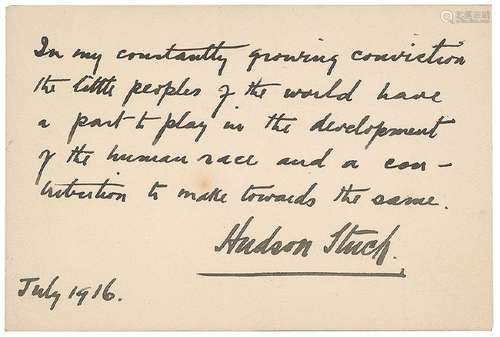 In my constantly growing conviction
the little peoples of the world have
a part to play in the development
of the human race and a con-
tribution to make towards the same.
Hudson Stuck.
July 1916.